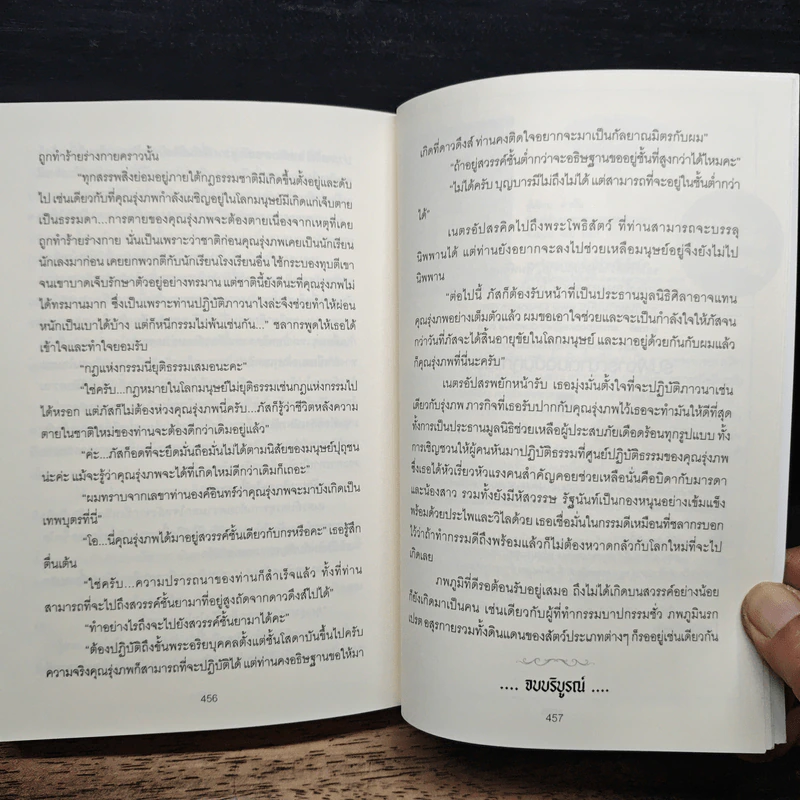 ถูกทำร้ายร่างกายคราวนั้น
"ทุกสรรพสิ่งย่อมอยู่ภายใต้กฎธรรมชาติมีเกิดขึ้นตั้งอยู่และดับ
ไป เช่นเดียวกับที่คุณรุ่งภพกำลังเผชิญอยู่ในโลกมนุษย์มีเกิดแก่เจ็บตาย
เป็นธรรมดา...การตายของคุณรุ่งภพจะต้องตายเนื่องจากเหตุที่เคย
ถูกทำร้ายร่างกาย นั่นเป็นเพราะว่าชาติก่อนคุณรุ่งภพเคยเป็นนักเรียน
นักเลงมาก่อน เคยยกพวกตีกับนักเรียนโรงเรียนอื่น ใช้กระบองทุบตีเขา
จนเขาบาดเจ็บรักษาตัวอยู่อย่างทรมาน แต่ชาตินี้ยังดีนะที่คุณรุ่งภพไม่
ได้ทรมานมาก ซึ่งเป็นเพราะท่านปฏิบัติภาวนาไงล่ะจึงช่วยทำให้ผ่อน
หนักเป็นเบาได้บ้าง แต่ก็หนีกรรมไม่พ้นเช่นกัน..." ชลากรพูดให้เธอได้
เข้าใจและทำใจยอมรับ
"กฎแห่งกรรมนี่ยุติธรรมเสมอนะคะ"
"ใช่ครับ...กฎหมายในโลกมนุษย์ไม่ยุติธรรมเช่นกฎแห่งกรรมไป
ได้หรอก แต่ภัสไม่ต้องห่วงคุณรุ่งภพนี่ครับ...ภัสก็รู้ว่าชีวิตหลังความ
ตายในชาติใหม่ของท่านจะต้องดีกว่าเดิมอยู่แล้ว"
"ค่ะ...ภัสก็อดที่จะยึดมั่นถือมั่นไม่ได้ตามนิสัยของมนุษย์ปุถุชน
น่ะค่ะ แม้จะรู้ว่าคุณรุ่งภพจะได้ที่เกิดใหม่ดีกว่าเดิมก็เถอะ"
"ผมทราบจากเลขาท่านองค์อินทร์ว่าคุณรุ่งภพจะมาบังเกิดเป็น
เทพบุตรที่นี่"
"โอ...นี่คุณรุ่งภพได้มาอยู่สวรรค์ชั้นเดียวกับกรหรือคะ" เธอรู้สึก
ตื่นเต้น
"ใช่ครับ...ความปรารถนาของท่านก็สำเร็จแล้ว ทั้งที่ท่าน
สามารถที่จะไปถึงสวรรค์ชั้นยามาที่อยู่สูงถัดจากดาวดึงส์ไปได้"
"ทำอย่างไรถึงจะไปยังสวรรค์ชั้นยามาได้คะ"
"ต้องปฏิบัติถึงขั้นพระอริยบุคคลตั้งแต่ชั้นโสดาบันขึ้นไปครับ
ความจริงคุณรุ่งภพก็สามารถที่จะปฏิบัติได้ แต่ท่านคงอธิษฐานขอให้มา
456
เกิดที่ดาวดึงส์ ท่านคงติดใจอยากจะมาเป็นกัลยาณมิตรกับผม"
"ถ้าอยู่สวรรค์ชั้นต่ำกว่าจะอธิษฐานขออยู่ชั้นที่สูงกว่าได้ไหมคะ"
"ไม่ได้ครับ บุญบารมีไม่ถึงไม่ได้ แต่สามารถที่จะอยู่ในชั้นต่ำกว่า
ได้"
เนตรอัปสรคิดไปถึงพระโพธิสัตว์ ที่ท่านสามารถจะบรรลุ
นิพพานได้ แต่ท่านยังอยากจะลงไปช่วยเหลือมนุษย์อยู่จึงยังไม่ไป
นิพพาน
"ต่อไปนี้ ภัสก็ต้องรับหน้าที่เป็นประธานมูลนิธิศิลาอาจแทน
คุณรุ่งภพอย่างเต็มตัวแล้ว ผมขอเอาใจช่วยและจะเป็นกำลังใจให้ภัสจน
กว่าวันที่ภัสจะได้สิ้นอายุขัยในโลกมนุษย์ และมาอยู่ด้วยกันกับผมแล้ว
ก็คุณรุ่งภพที่นี่นะครับ"
เนตรอัปสรพยักหน้ารับ เธอมุ่งมั่นตั้งใจที่จะปฏิบัติภาวนาเช่น
เดียวกับรุ่งภพ ภารกิจที่เธอรับปากกับคุณรุ่งภพไว้เธอจะทำมันให้ดีที่สุด
ทั้งการเป็นประธานมูลนิธิช่วยเหลือผู้ประสบภัยเดือดร้อนทุกรูปแบบ ทั้ง
การเชิญชวนให้ผู้คนหันมาปฏิบัติธรรมที่ศูนย์ปฏิบัติธรรมของคุณรุ่งภพ
ซึ่งเธอได้หัวเรี่ยวหัวแรงคนสำคัญคอยช่วยเหลือนั่นคือบิดากับมารดา
และน้องสาว รวมทั้งยังมีหัสวรรษ รัฐนันท์เป็นกองหนุนอย่างเข้มแข็ง
พร้อมด้วยประไพและวิไลด้วย เธอเชื่อมั่นในกรรมดีเหมือนที่ชลากรบอก
ไว้ว่าถ้าทำกรรมดีถึงพร้อมแล้วก็ไม่ต้องหวาดกลัวกับโลกใหม่ที่จะไป
เกิดเลย
ภพภูมิที่ดีรอต้อนรับอยู่เสมอ ถึงไม่ได้เกิดบนสวรรค์อย่างน้อย
ก็ยังเกิดมาเป็นคน เช่นเดียวกับผู้ที่ทำกรรมบาปกรรมชั่ว ภพภูมินรก
เปรต อสุรกายรวมทั้งดินแดนของสัตว์ประเภทต่างๆ ก็รออยู่เช่นเดียวกัน
.... จบบริบูรณ์ ....
457